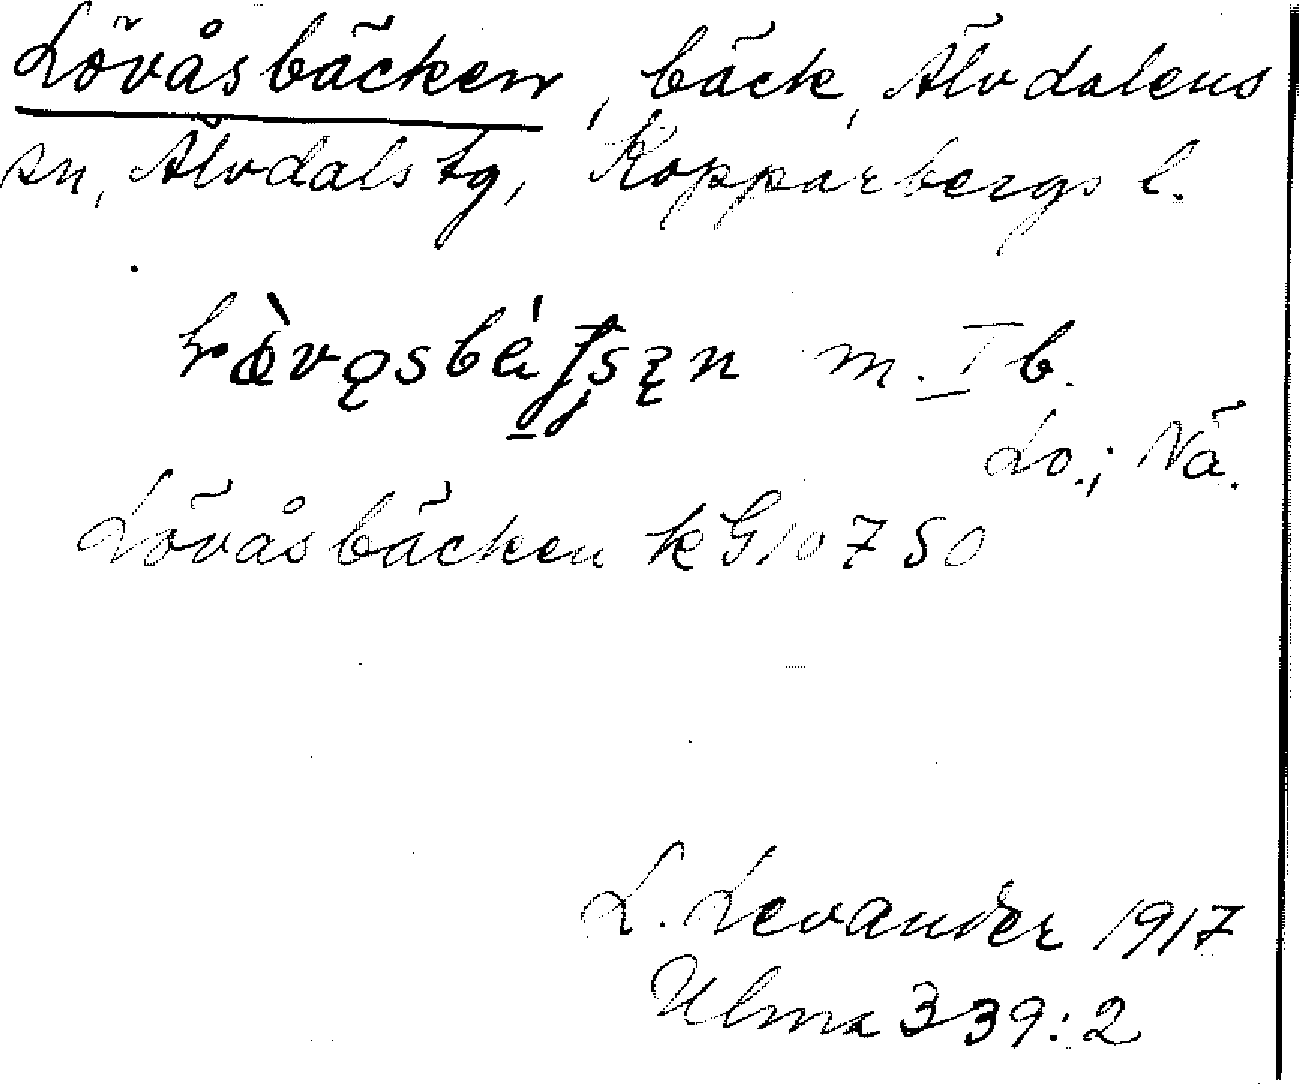 Lövåsbäcken, bäck, Älvdalens
sn, Älvdals tg, Kopparbergs l.
m. I b.
Lo.; Nä.
Lövåsbäcken kG10750
L. Levander 1917
Ulma 339:2